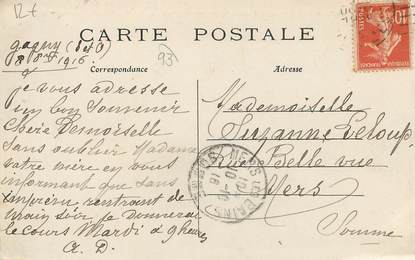 12 €
CARTE POSTALE
10
gagny (S et O)
8 8bre 1916
93
Correspondance
Adresse
je vous adresse
un bon souvenir
Chère Demoiselle
sans oublier Madame
votre mère en vous
informant que sans
imprévu rentrant de
main soir je donnerai
le cours Mardi à 9 heures
A. D.
Mademoiselle
Suzanne Leloup
Belle vue
Mers
Somme
MERS LES BAINS
SOMME
10-10
16